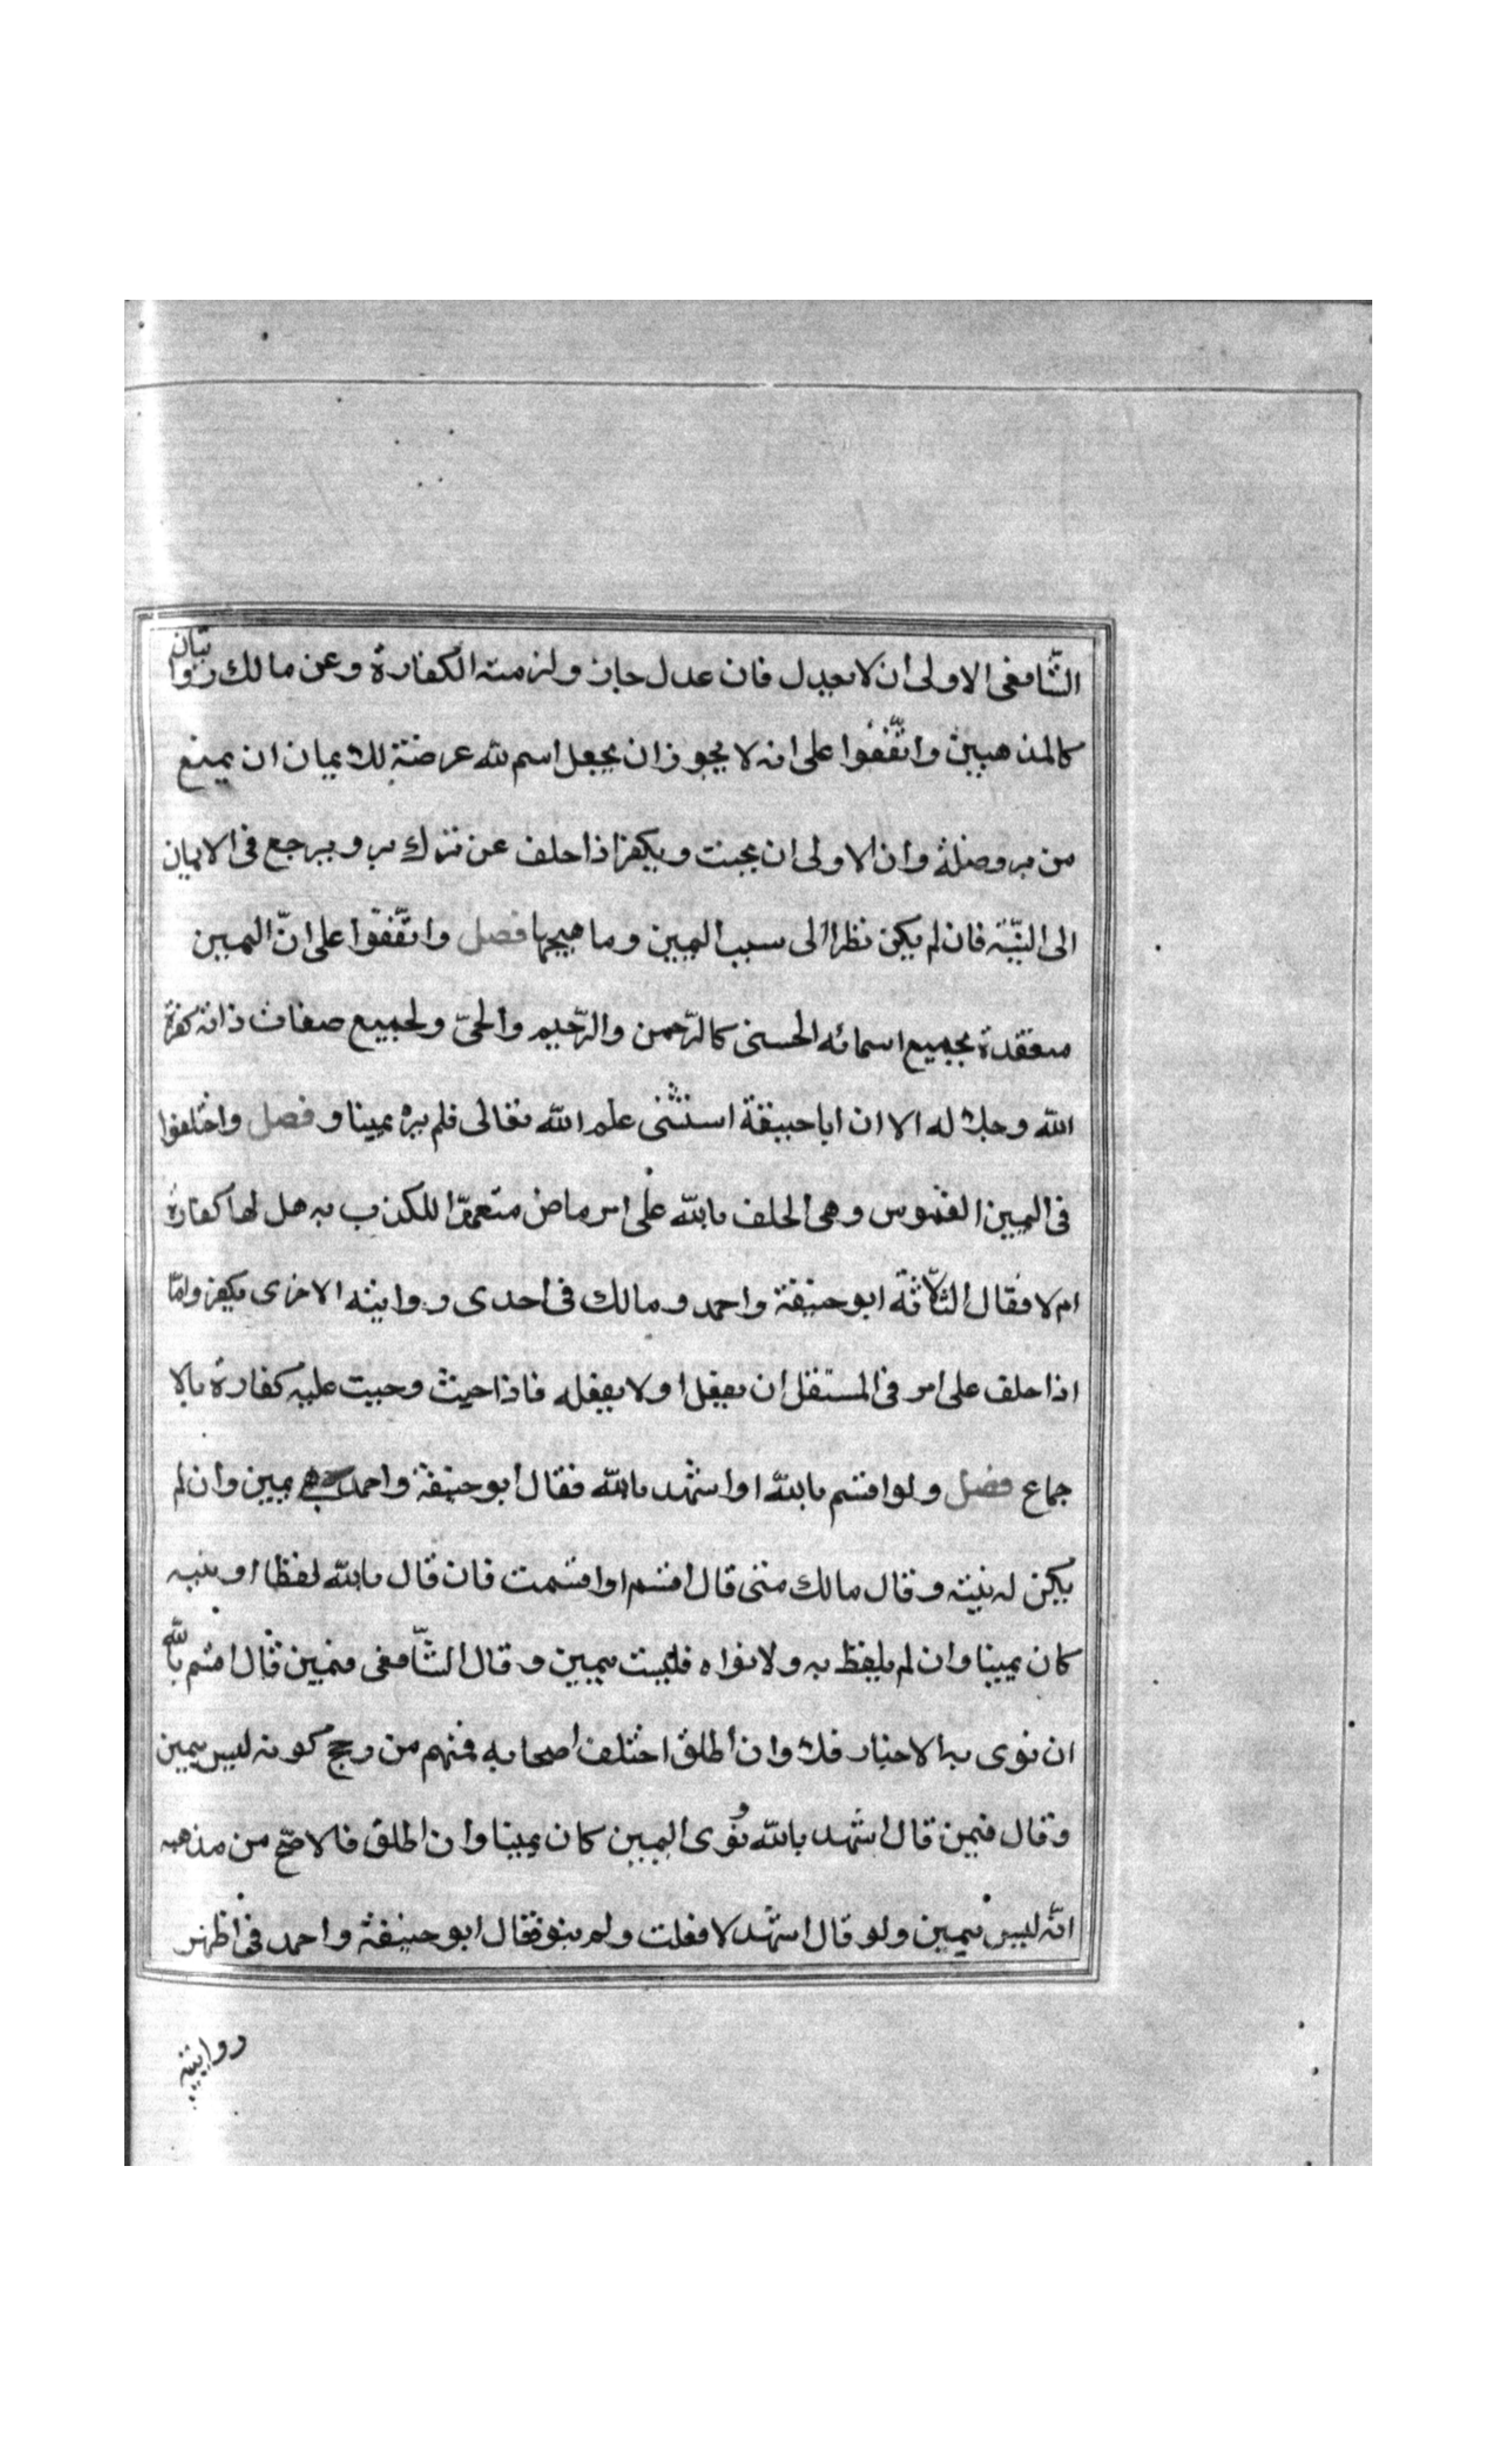 الشّافعى الاولى ان لا يعدل فان عدل جاز ولزمته الكفارة وعن مالك روايتان
كالمذهبين واتّفقوا على انه لا يجوز ان يجعل اسم لله عرضة للايمان ان يمنع
من بر وصلة وان الاولى ان يحنث ويكفر اذا حلف عن ترك بر ويرجع فى الايمان
الى النيّة فان لم يكن نظر الى سبب اليمين وما هيجها فصل واتّفقوا على انّ اليمين
منعقدة بجميع اسمائه الحسنى كالرّحمن والرّحيم والحىّ ولجميع صفات ذاته كعزة
الله وجلاله الا ان ابا حنيفة استثنى علم الله تعالى فلم يره يمينا و فصل واختلفوا
فى اليمين الغموس وهى الحلف بالله على امر ماض متعمدّا للكذب به هل لها كفارة
ام لا فقال الثلاّثة ابو حنيفة واحمد ومالك فى احدى روايته الاخرى يكفر وامّا
اذا حلف على امر فى المستقبل ان يفعل او لا يفعله فاذا حنث وجبت عليه كفارة بالا
جماع فصل ولو اقسم بالله او اشهد بالله فقال ابو حنيفة واحمد هى يمين وان لم
يكن له نيته وقال مالك متى قال اقسم او اقسمت فان قال بالله لفظا او نيه
كان يمينا وان لم يلفظ به ولا نواه فليست بيمين وقال الشّافعى فيمن قال اقسم بالله
ان نوى به الاخبار فلا وان اطلق اختلف اصحابه فمنهم من رجح كونه ليس بيمين
وقال فيمن قال اشهد بالله ونوى اليمين كان يمينا وان اطلق فالاصّح من مذهبه
انّه ليس بيمين ولو قال اشهد لا فعلت ولم ينو فقال ابو حنيفة واحمد فى اظهر
روايتيه